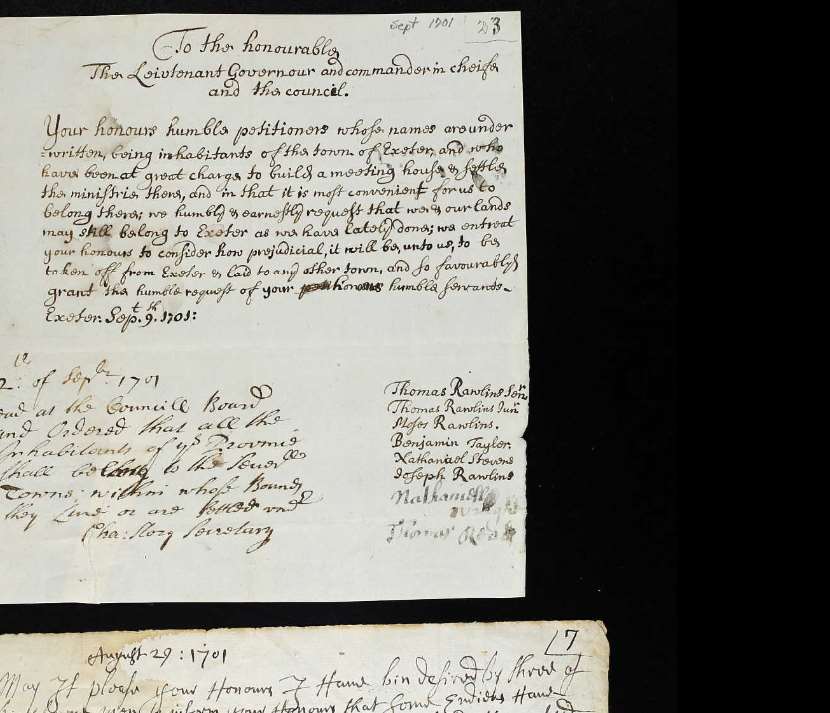 Sept 1701 23
To the honourable
The Leivtenant Governour and commander in cheife
and the council.
Your honours humble petitioners whose names are under
=written, being inhabitants of the town of Exeter, and who
have been at great charge to build a meeting house & settle
the ministrie there, and in that it is most convenient for us to
belong there; we humbly & earnestly request that wee & our lands
may still belong to Exeter as we have lately done; we entreat
your honours to consider how prejudicial, it will be, unto us, to be
taken off from Exeter & laid to any other town, and so favourably
grant the humble request of your honours humble servants.
Exeter. Sept. 9th. 1701:
of Sepbr 1701
at the Councill Board
and Ordered that all the
Inhabitants of ys Province
shall belong to the Severlle
Towns; within whose Bounds
they Live or are settled
Cha: Story Secretary
Thomas Rawlins Senr
Thomas Rawlins Junr
Moses Rawlins.
Benjamin Tayler.
Nathaniel Stevens
Joseph Rawlins
Nathaniell
Thomas
17
August 29: 1701
May It please your Honours I Have bin desired by three of
your Honours that some Endiens Have